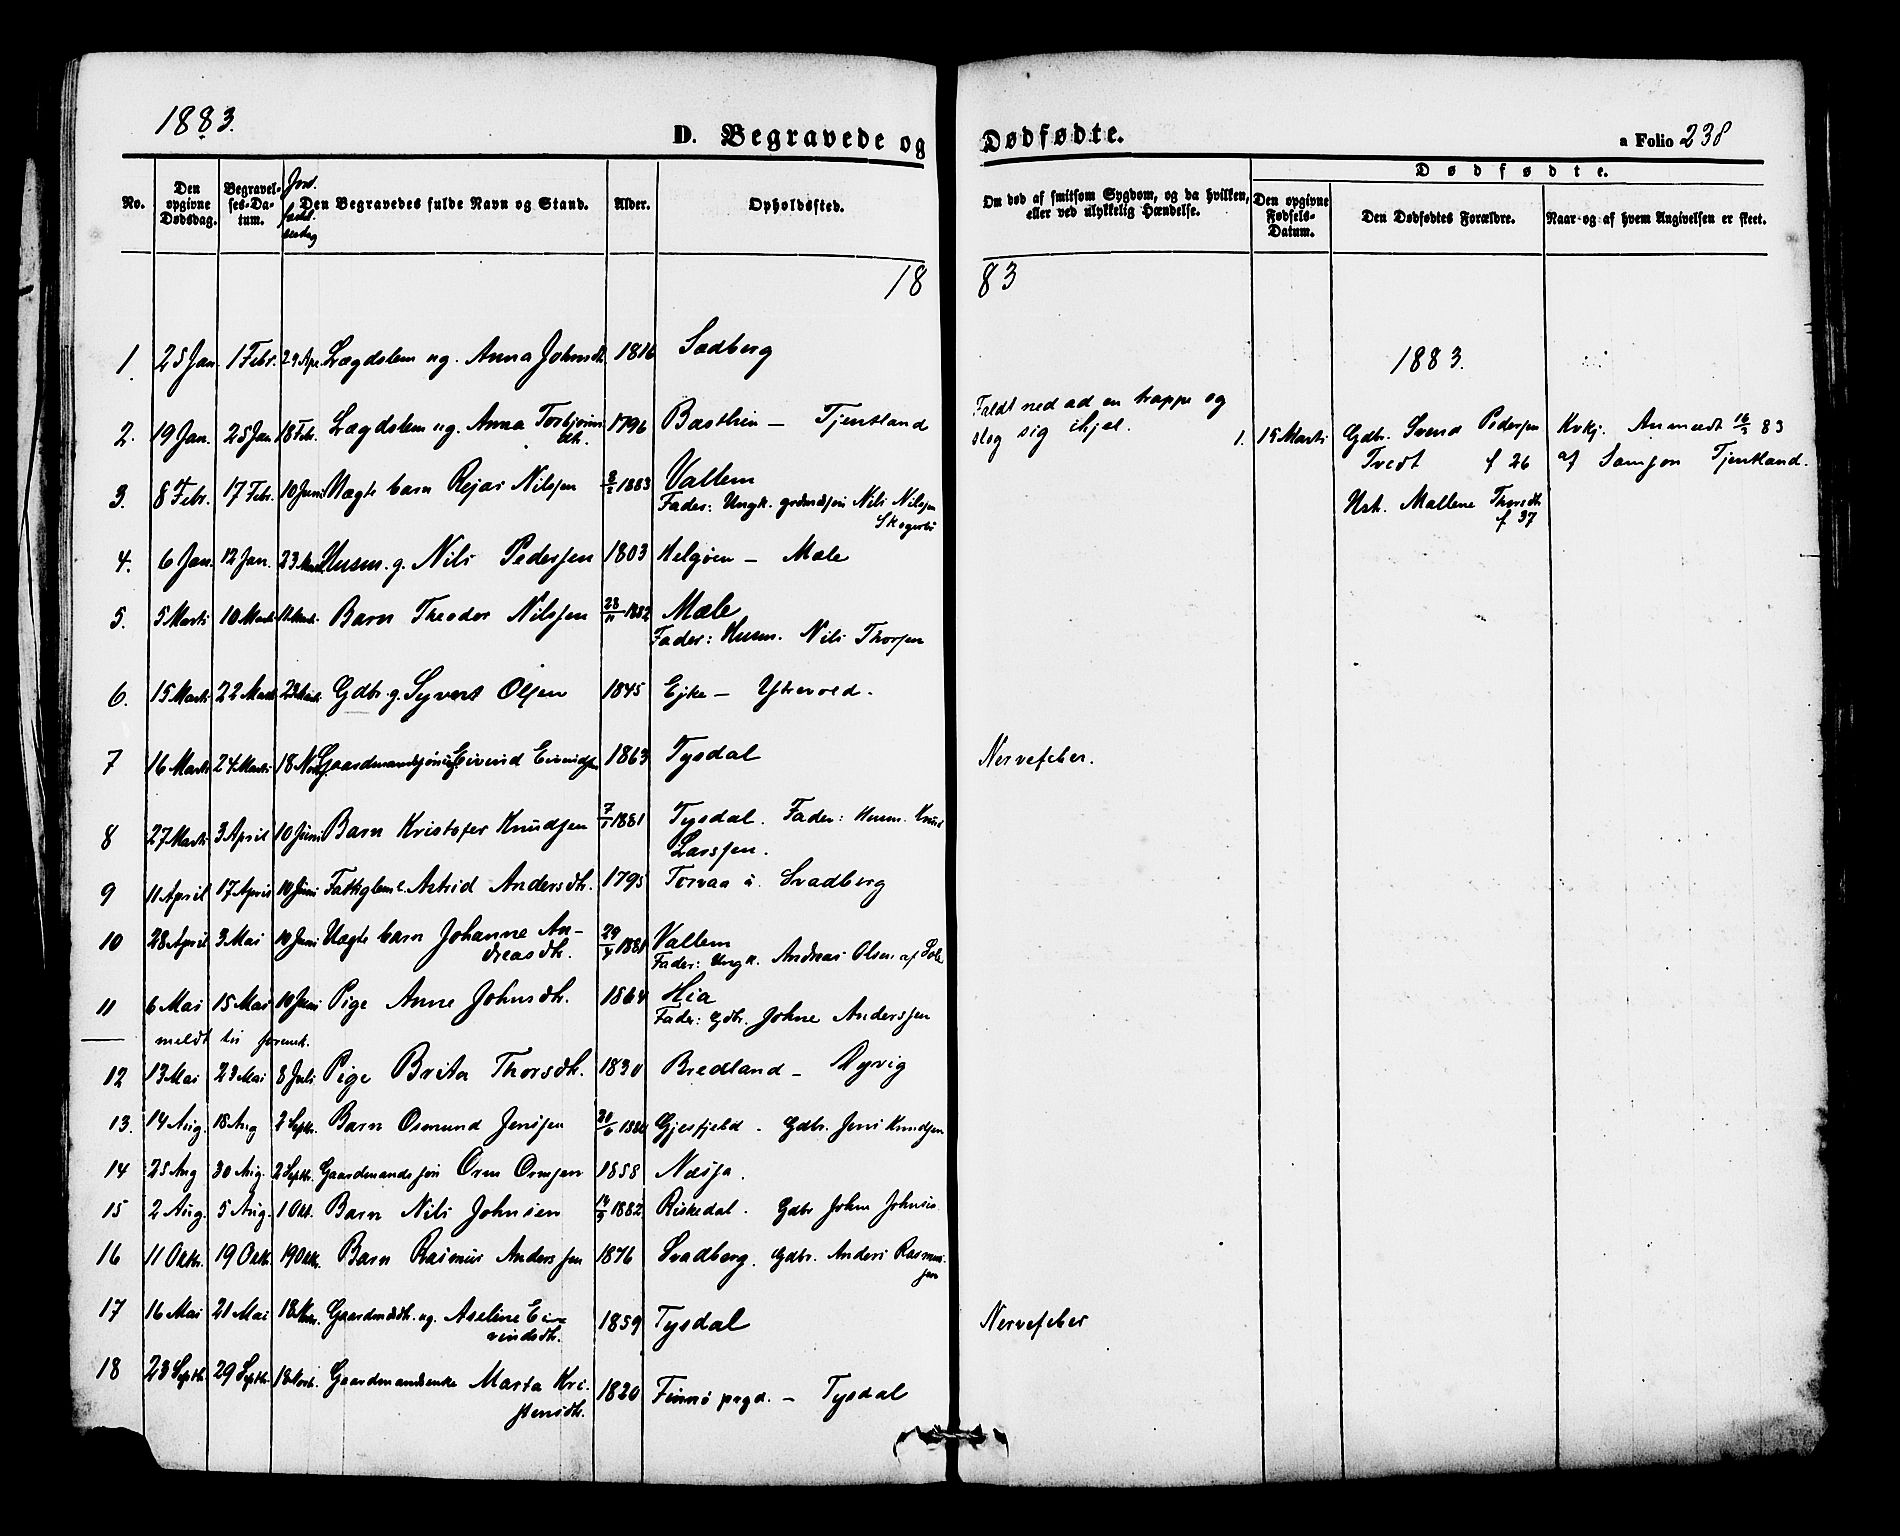 1883.
D. Begravede og Dødfødte.
a Folio 238
No.
Den opgivne Dødsdag.
Begravelses-Datum.
Den Begravedes fulde Navn og Stand.
Alder.
Opholdssted.
Om død af smitsom Sygdom, og da hvilken, eller ved ulykkelig Hændelse.
Dødfødte.
Den opgivne Fødsels-Datum.
Den Dødfødtes Forældre.
Naar og af hvem Angivelsen er skeet.
18 83
1883.
1. 25 Jan. 1 Febr. 29 Apr. Lægdslem ug. Anna Johnsdt. 1816 Sædberg
2. 19 Jan. 25 Jan 18 Febr. Lægdslem ug. Anna Torbjørns dt. 1796 Basthein — Tjentland Faldt ned ad en trappe og
slog sig ihjel.
1. 15 Marts Gdbr. Svend Pedersen Kvkj. Anmeldt 16/3 83
Tvedt f 26 af Samson Tjentland.
Ust. Mallene Thorsdt.
f 37
3. 8 Febr. 17 Febr. 10 Juni Uægte barn Rejar Nilsen 2/2 1883 Vallem
Fader: Ungk. grdmdsøn Nils Nilsen
4. 6 Jan. 12 Jan. 23 Husm. g. Nils Pedersen 1803 Helgøen — Mæle
5. 5 Marts 10 Marts 11 Marts Barn Theodor Nilsen 23/11 1882 Mæle
Fader: Husm. Nils Thorsen
6. 15 Marts 22 Marts 23 Marts Gdbr. g. Syvert Olsen 1845 Eike — Ytrevold.
7 16 Marts 24 Marts 18 Gaardmandssøn Eivind Eivindsen 1863 Tysdal Nervefeber.
8 27 Marts 3 April 10 Juni Barn Kristofer Knudsen 7/1 1881 Tysdal. Fader: Husm. Knud
Larssen.
9 11 April 17 April 10 Juni Fattiglem Astrid Andersdt. 1795 Torvaa i Svadberg
10 28 April 3 Mai 10 Juni Uægte barn Johanne Andreasdt. 29/4 1881 Vallem
Fader: Ungk. Andreas Olsen af
11 6 Mai 15 Mai 10 Juni Pige Anne Johnsdt. 1864 Hia
Fader: Gdbr. Johne Anderssen
meldt til
12 13 Mai 23 Mai 8 Juli Pige Brita Thorsdt. 1830 Bredland — Dyrvig
13. 14 Aug. 18 Aug 2 Septbr. Barn Osmund Jensen Gjesfjeld. Gdbr. Jens Knudsen
14 25 Aug 30 Aug. 2 Septbr. Gaardmandssøn Orm Ormsen 1858 Næsja.
15 2 Aug. 5 Aug. 1 Okt. Barn Nils Johnsen 1882 Riskedal. Gdbr John Johnsen
16 11 Oktr. 19 Oktr. 19 Oktr. Barn Rasmus Anderssen 1876 Svadberg. Gdbr. Anders Rasmussen
17 16 Mai 21 Mai 18 Gaardmdsdt. ug. Aseline Eivindsdt. 1859 Tysdal Nervefeber
18 23 Septbr. 29 Septbr. 18 Novb. Gaardmandsenke Marta Kristensdt. 1820 Finnø prgd. — Tysdal